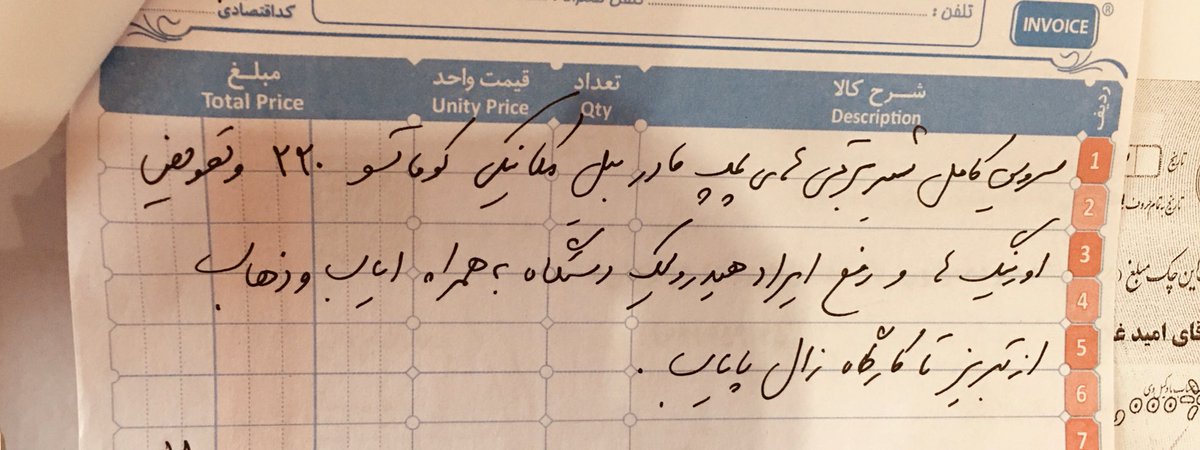 کداقتصادی
تلفن :
INVOICE
ردیف
شرح کالا
Description
تعداد
Qty
قیمت واحد
Unity Price
مبلغ
Total Price
1 سرویس کامل شیر برقی های پمپ مادر بیل مکانیکی کوماتسو ۲۲۰ و تعویض
2
3 اورینگ ها و رفع ایراد هیدرولیک دستگاه به همراه ایاب و ذهاب
4
5 از تبریز تا کارگاه زال پایاب .
6
7
تاریخ
تاریخ به تمام حروف
این چک مبلغ
قای امید